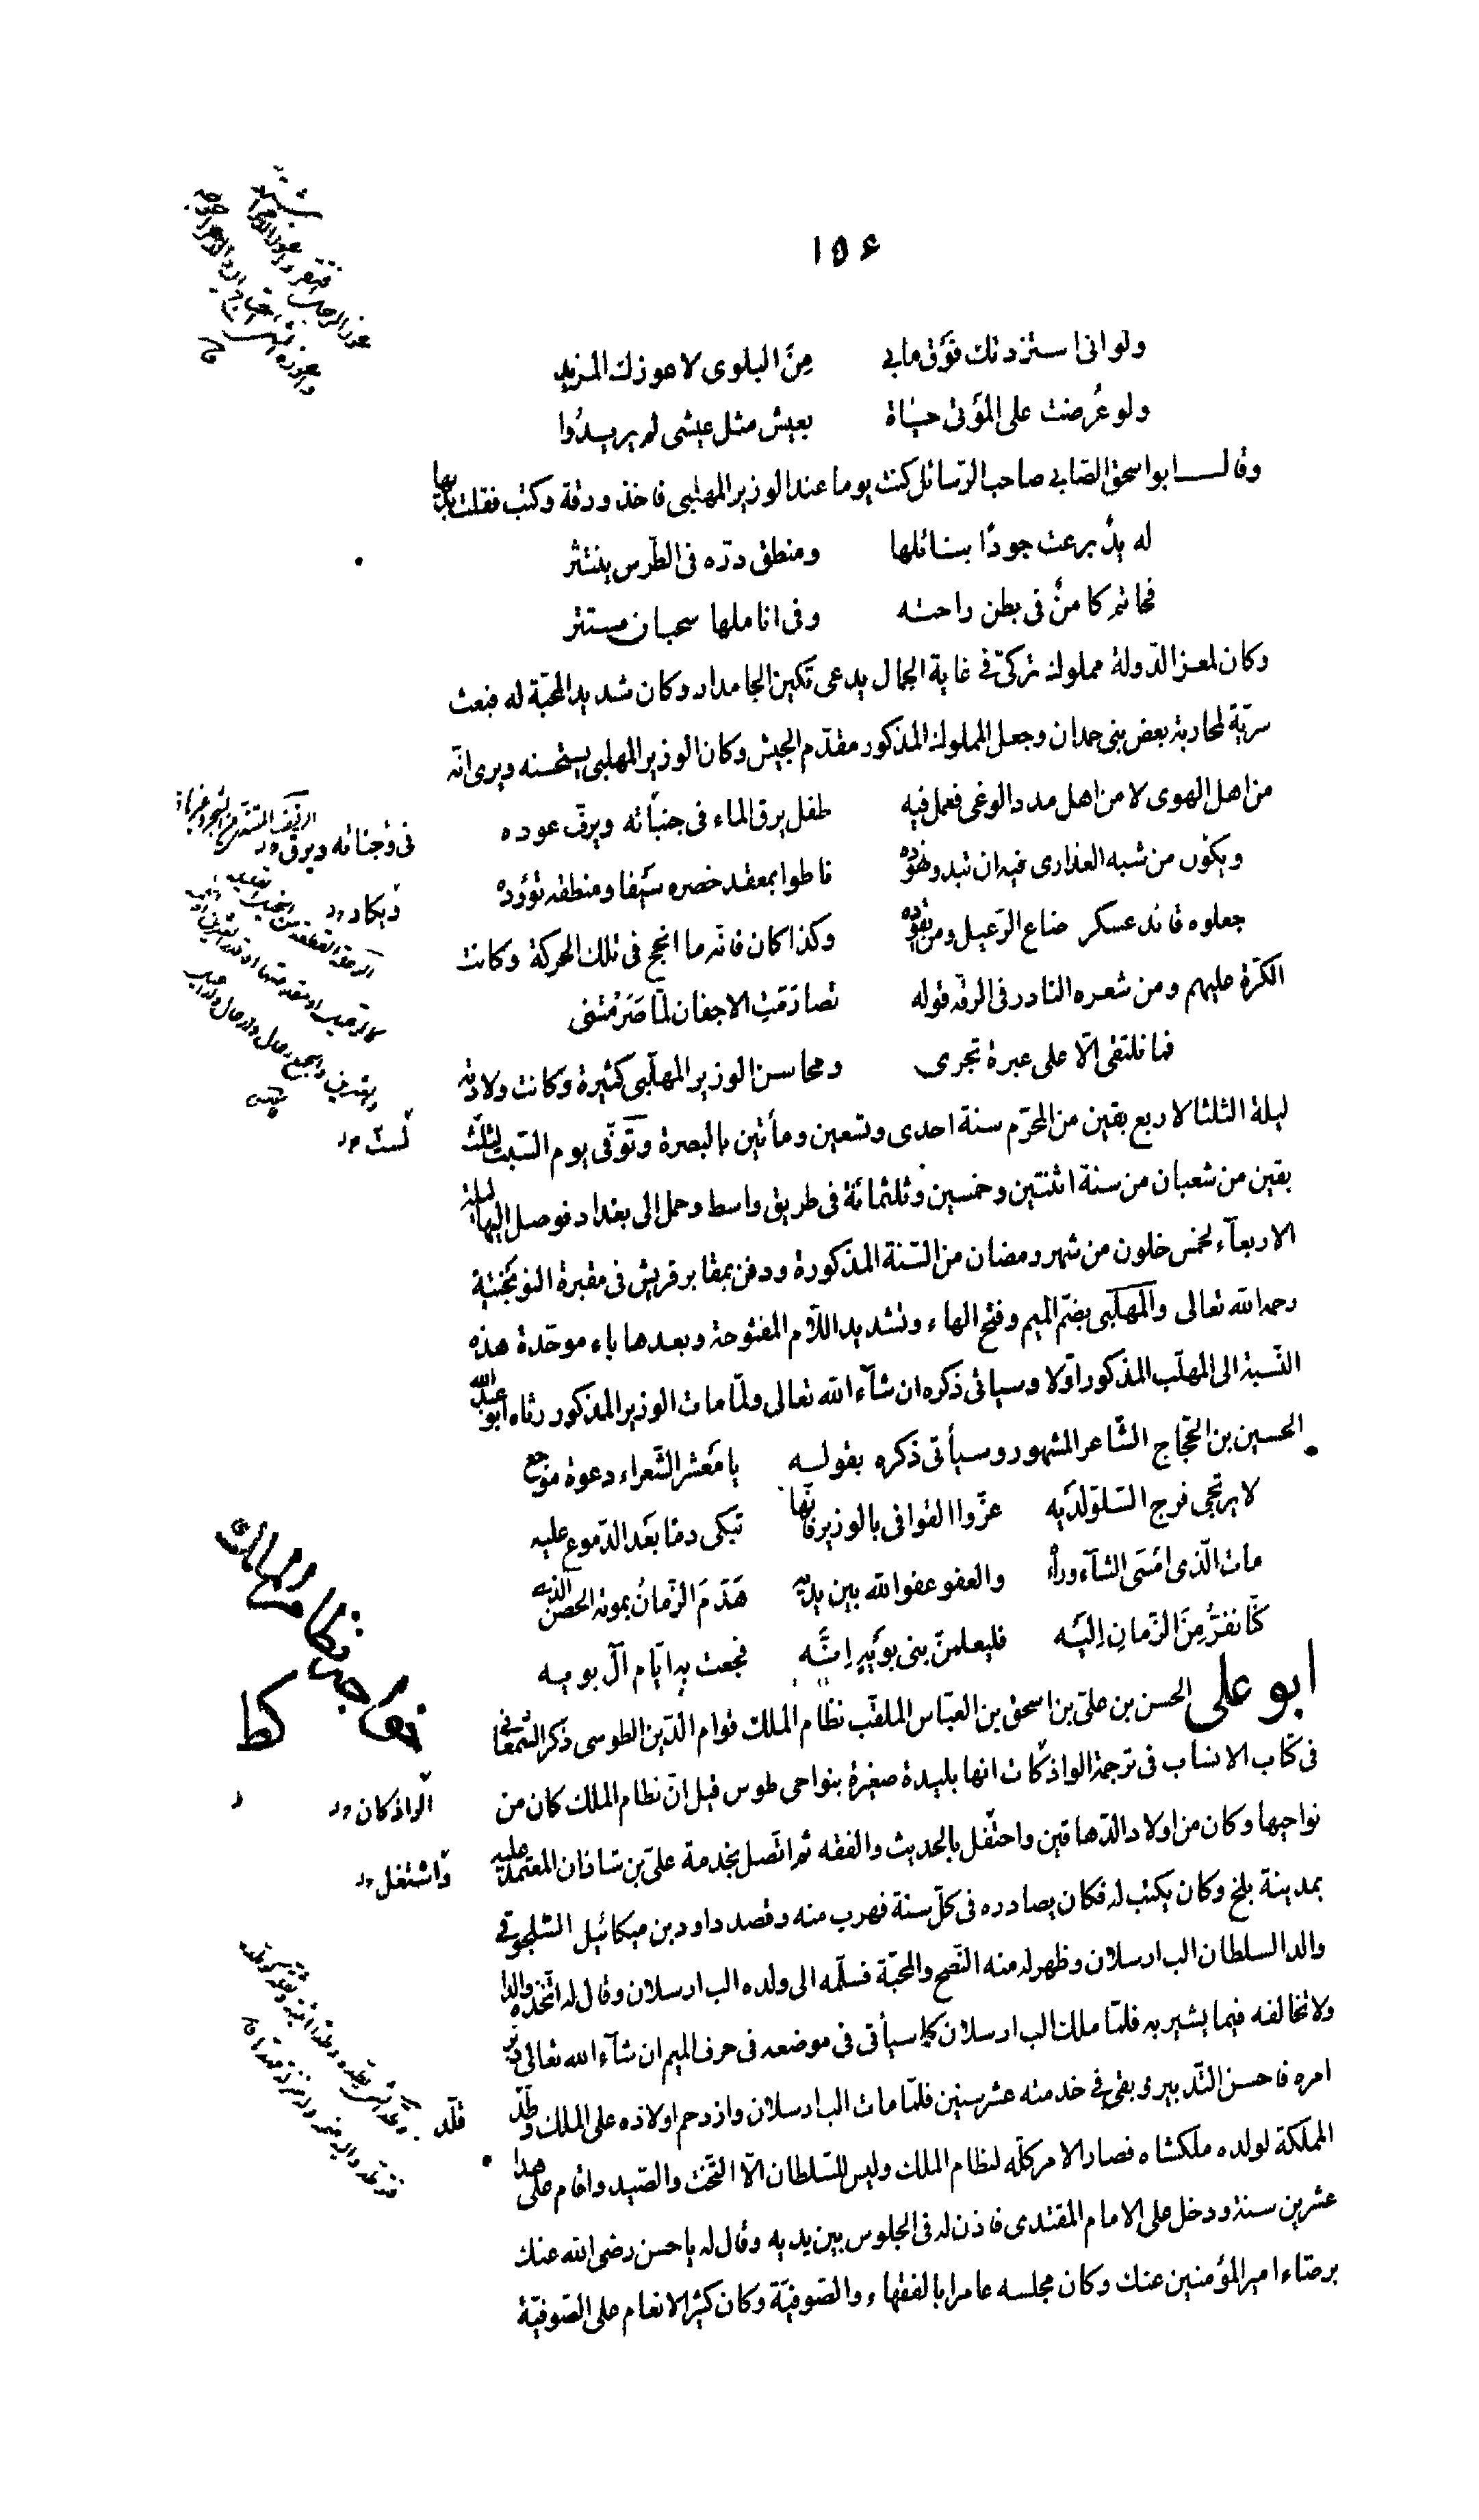 ١٥٤
ولو انى استزدتك فوق مابي من البلوى لاعوزك المزيد
ولو عُرضت على الموتى حياة بعيش مثل عيشى لم يريدُوا
وقال ابو اسحق الصّابي صاحب الرّسائل كنت يوما عند الوزير المهلبى فاخذ ورقة وكتب فقلت بديها
له يدٌ برعت جودًا بنائلها ومنطق درّه فى الطّرس ينتثر
فحاتم كامنٌ فى بطن راحته وفى اناملها سحبان مستتر
وكان لمعز الدّولة مملوك تركىّ فى غاية الجمال يدعى تكين الجامدار وكان شديد المحبّة له فبعث
سريّة لمحاربة بعض بنى حمدان وجعل المملوك المذكور مقدّم الجيش وكان الوزير المهلبى يستحسنه ويرى انّه
من اهل الهوى لا من اهل مدد الوغى فعمل فيه طفل يرق الماء فى جنباته ويرق عوده
ويكون من شبه العذارى فيه ان تبدو نهوده ناطوا بمعقد خصره سيفا ومنطقه تؤوده
جعلوه قائد عسكر ضاع الرّعيل ومن يقوده وكذا كان فانّه ما انجح فى تلك الحركة وكانت
الكرّة عليهم ومن شعره النادر فى الرقّة قوله تصارَمَتِ الاجفان لمّا صَرَمْتنى
فما نلتقى الّا على عبرة تجرى ومحاسن الوزير المهلّبى كثيرة وكانت ولادته
ليلة الثلثا لاربع بقين من المحرّم سنة احدى وتسعين ومأتين بالبصرة وتوفّى يوم السّبت لثلث
بقين من شعبان من سنة اثنتين وخمسين وثلثمائة فى طريق واسط وحمل الى بغداد فوصل اليها ليلة
الاربعآء لخمس خلون من شهر رمضان من السّنة المذكورة ودفن بمقابر قريش فى مقبرة النوبختية
رحمه الله تعالى والمهلّبى بضمّ الميم وفتح الهاء وتشديد اللّام المفتوحة وبعدها باء موحّدة هذه
النّسبة الى المهلّب المذكور اوّلا وسياتى ذكره ان شآء الله تعالى ولمّا مات الوزير المذكور رثاه ابو عبد الله
الحسين بن الحجّاج الشّاعر المشهور وسيأتى ذكره بقوله يا مَعشر الشّعراء دعوة موجع
لا يرتجى فرج السّلوّ لدَيه عزّوا القوافى بالوزير فانّها تبكى دمًا بعَد الدّموع عليه
مات الّذى امسَى الثنآء وراءه والعفو عفو الله بين يديه هَدَمَ الزّمانُ بموته الحصن الّذى
كنّا نفرُّ مِنَ الزّمانِ اِليَه فليعلمنّ بنى بوَيهِ اِنّه فجعت به ايّام آل بويه
ابو على الحسن بن علىّ بن اسحق بن العبّاس الملقّب نظام الملك قوام الدّين الطوسى ذكر السّمعانى
فى كتاب الانساب فى ترجمة الواذكات انها بليدة صغيرة بنواحى طوس قيل انّ نظام الملك كان من
نواحيها وكان من اولاد الدّهاقين واحتفل بالحديث والفقه ثم اتّصل بخدمة علىّ بن شاذان المعتمد عليه
بمدينة بلخ وكان يكتب له فكان يصادره فى كلّ سنة فهرب منه وقصد داود بن ميكائيل السّلجوقى
والد السلطان الب ارسلان وظهر له منه النّصح والمحبّة فسلّمه الى ولده الب ارسلان وقال له اتّخذه والدا
ولا تخالفه فيما يشير به فلمّا ملك الب ارسلان كما سيأتى فى موضعه فى حرف الميم ان شآء الله تعالى دبّر
امره فاحسن التّدبير وبقى فى خدمته عشر سنين فلمّا مات الب ارسلان وازدحم اولاده على الملك وطّد
المملكة لولده ملكشاه فصار الامر كلّه لنظام الملك وليس للسّلطان الّا التّخت والصّيد واقام على هذا
عشرين سنة ودخل على الامام المقتدى فاذن له فى الجلوس بين يديه وقال له يا حسن رضى الله عنك
برضاء امير المؤمنين عنك وكان مجلسه عامرا بالفقهاء والصّوفيّة وكان كثير الانعام على الصّوفيّة
فى وجناته ويرق
ويكاد
لست
خواجه نظام الملك
الراذكان
واشتغل
قلّد